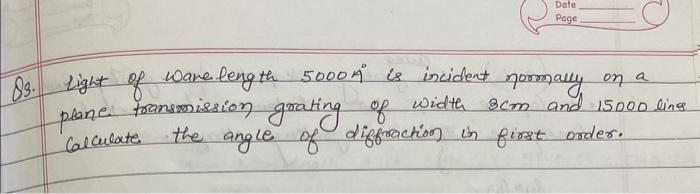 Date
Page
Q3. Light of Wavelength 5000 Å is incident normally on a
plane transmission grating of width 3cm and 15000 line
Calculate the angle of diffraction in first order.